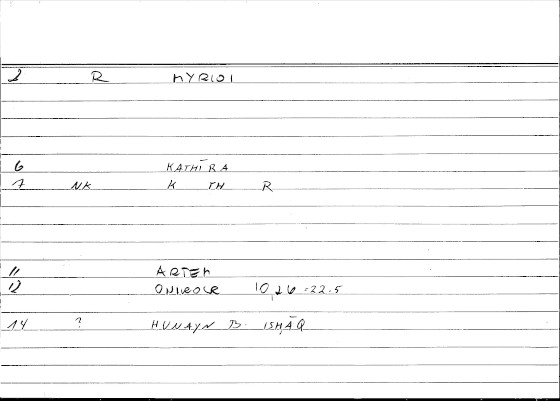 2 R MYRIOI
6 KATHĪRA
7 NK K TH R
11 ARTEM
12 ONIROCR 10,26-22.5
14 ? HUNAYN B. ISHĀQ